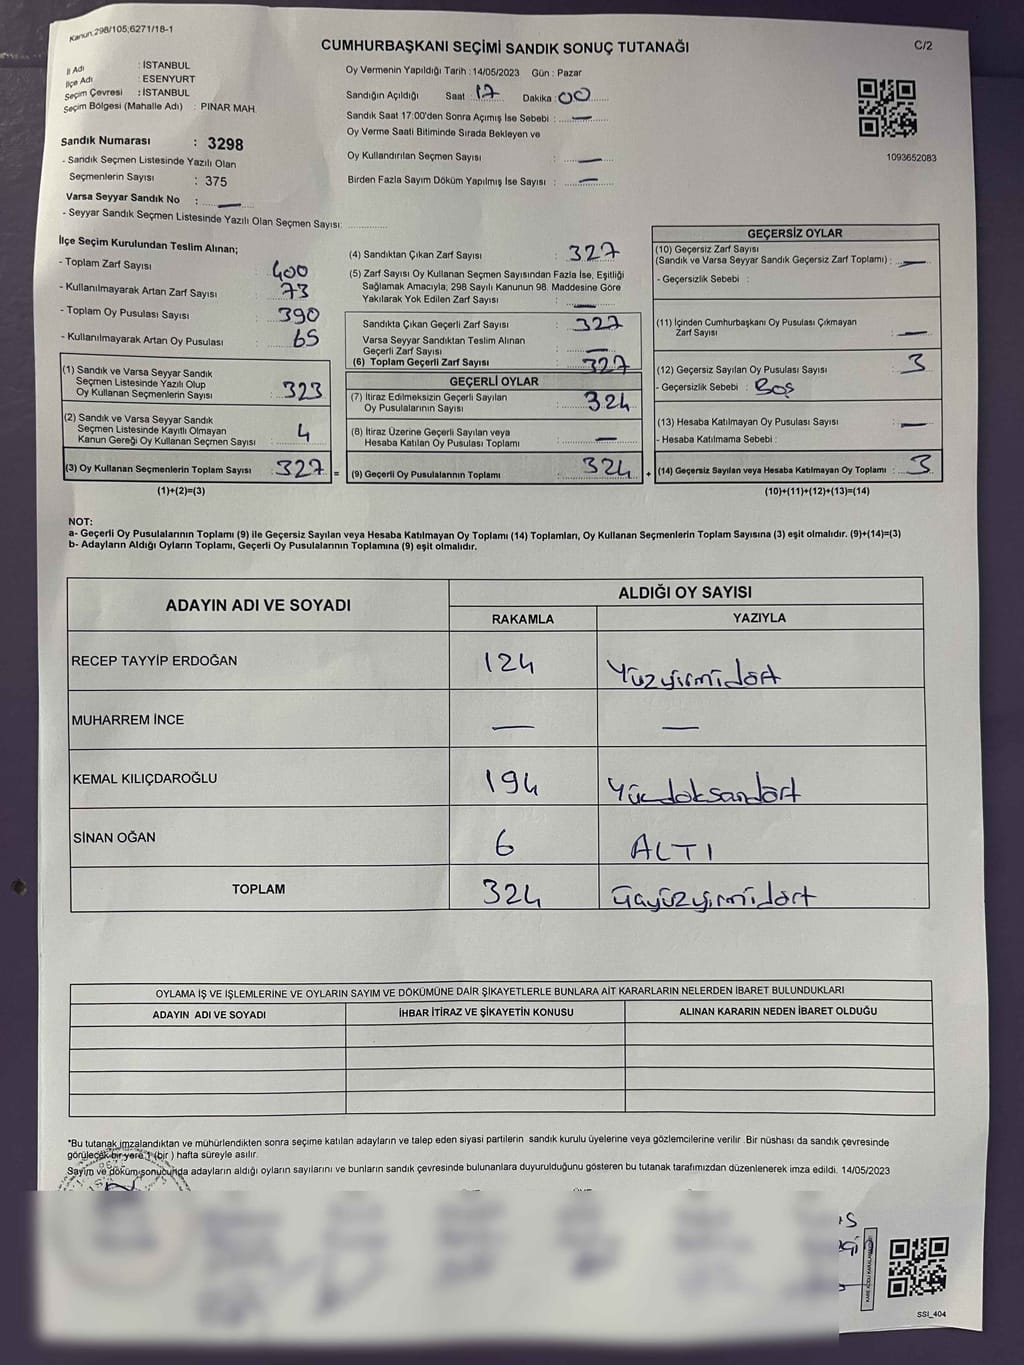 Kanun:298/105;6271/18-1
CUMHURBAŞKANI SEÇİMİ SANDIK SONUÇ TUTANAĞI
C/2
İl Adı : İSTANBUL
İlçe Adı : ESENYURT
Seçim Çevresi : İSTANBUL
Seçim Bölgesi (Mahalle Adı) : PINAR MAH
Sandık Numarası : 3298
- Sandık Seçmen Listesinde Yazılı Olan
Seçmenlerin Sayısı : 375
Varsa Seyyar Sandık No : —
- Seyyar Sandık Seçmen Listesinde Yazılı Olan Seçmen Sayısı:
Oy Vermenin Yapıldığı Tarih : 14/05/2023 Gün : Pazar
Sandığın Açıldığı Saat : 17 Dakika : 00
Sandık Saat 17:00'den Sonra Açımış İse Sebebi : —
Oy Verme Saati Bitiminde Sırada Bekleyen ve
Oy Kullandırılan Seçmen Sayısı : —
Birden Fazla Sayım Döküm Yapılmış İse Sayısı : —
1093652083
İlçe Seçim Kurulundan Teslim Alınan;
- Toplam Zarf Sayısı : 400
- Kullanılmayarak Artan Zarf Sayısı : 73
- Toplam Oy Pusulası Sayısı : 390
- Kullanılmayarak Artan Oy Pusulası : 65
(1) Sandık ve Varsa Seyyar Sandık
Seçmen Listesinde Yazılı Olup
Oy Kullanan Seçmenlerin Sayısı : 323
(2) Sandık ve Varsa Seyyar Sandık
Seçmen Listesinde Kayıtlı Olmayan
Kanun Gereği Oy Kullanan Seçmen Sayısı : 4
(3) Oy Kullanan Seçmenlerin Toplam Sayısı : 327 =
(1)+(2)=(3)
(4) Sandıktan Çıkan Zarf Sayısı : 327
(5) Zarf Sayısı Oy Kullanan Seçmen Sayısından Fazla İse, Eşitliği
Sağlamak Amacıyla, 298 Sayılı Kanunun 98. Maddesine Göre
Yakılarak Yok Edilen Zarf Sayısı : —
Sandıkta Çıkan Geçerli Zarf Sayısı : 327
Varsa Seyyar Sandıktan Teslim Alınan
Geçerli Zarf Sayısı : —
(6) Toplam Geçerli Zarf Sayısı : 327
GEÇERLİ OYLAR
(7) İtiraz Edilmeksizin Geçerli Sayılan
Oy Pusulalarının Sayısı : 324
(8) İtiraz Üzerine Geçerli Sayılan veya
Hesaba Katılan Oy Pusulası Toplamı : —
(9) Geçerli Oy Pusulalarının Toplamı : 324 +
GEÇERSİZ OYLAR
(10) Geçersiz Zarf Sayısı
(Sandık ve Varsa Seyyar Sandık Geçersiz Zarf Toplamı) : —
- Geçersizlik Sebebi :
(11) İçinden Cumhurbaşkanı Oy Pusulası Çıkmayan
Zarf Sayısı : —
(12) Geçersiz Sayılan Oy Pusulası Sayısı : 3
- Geçersizlik Sebebi : Boş
(13) Hesaba Katılmayan Oy Pusulası Sayısı : —
- Hesaba Katılmama Sebebi :
(14) Geçersiz Sayılan veya Hesaba Katılmayan Oy Toplamı : 3
(10)+(11)+(12)+(13)=(14)
NOT:
a- Geçerli Oy Pusulalarının Toplamı (9) ile Geçersiz Sayılan veya Hesaba Katılmayan Oy Toplamı (14) Toplamları, Oy Kullanan Seçmenlerin Toplam Sayısına (3) eşit olmalıdır. (9)+(14)=(3)
b- Adayların Aldığı Oyların Toplamı, Geçerli Oy Pusulalarının Toplamına (9) eşit olmalıdır.
ADAYIN ADI VE SOYADI ALDIĞI OY SAYISI
RAKAMLA YAZIYLA
RECEP TAYYİP ERDOĞAN 124 Yüzyirmidört
MUHARREM İNCE — —
KEMAL KILIÇDAROĞLU 194 Yüzdoksandört
SİNAN OĞAN 6 ALTI
TOPLAM 324 üçyüzyirmidört
OYLAMA İŞ VE İŞLEMLERİNE VE OYLARIN SAYIM VE DÖKÜMÜNE DAİR ŞİKAYETLERLE BUNLARA AİT KARARLARIN NELERDEN İBARET BULUNDUKLARI
ADAYIN ADI VE SOYADI İHBAR İTİRAZ VE ŞİKAYETİN KONUSU ALINAN KARARIN NEDEN İBARET OLDUĞU
*Bu tutanak imzalandıktan ve mühürlendikten sonra seçime katılan adayların ve talep eden siyasi partilerin sandık kurulu üyelerine veya gözlemcilerine verilir .Bir nüshası da sandık çevresinde
görülecek bir yere 1 (bir ) hafta süreyle asılır.
Sayım ve döküm sonucunda adayların aldığı oyların sayılarını ve bunların sandık çevresinde bulunanlara duyurulduğunu gösteren bu tutanak tarafımızdan düzenlenerek imza edildi. 14/05/2023
SSI_404